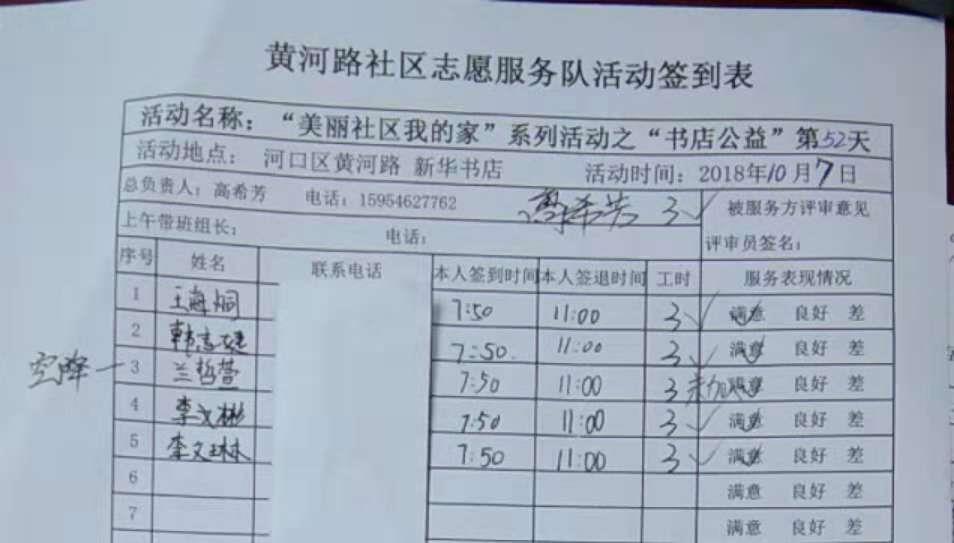 黄河路社区志愿服务队活动签到表
活动名称：“美丽社区我的家”系列活动之“书店公益”第52天
活动地点： 河口区黄河路 新华书店 活动时间：2018年10月7日
总负责人：高希芳 电话：15954627762 高希芳 3✓ 被服务方评审意见
上午带班组长： 电话： 评审员签名：
序号 姓名 联系电话 本人签到时间 本人签退时间 工时 服务表现情况
1 王海 7:50 11:00 3✓ 满意✓ 良好 差
2 韩 7:50. 11:00 3✓ 满意✓ 良好 差
空降 — 3 兰哲萱 7:50 11:00 3 未加 满意✓ 良好 差
4 李文彬 7:50 11:00 3✓ 满意✓ 良好 差
5 李文琳 7:50 11:00 3✓ 满意✓ 良好 差
6 满意 良好 差
7 满意 良好 差